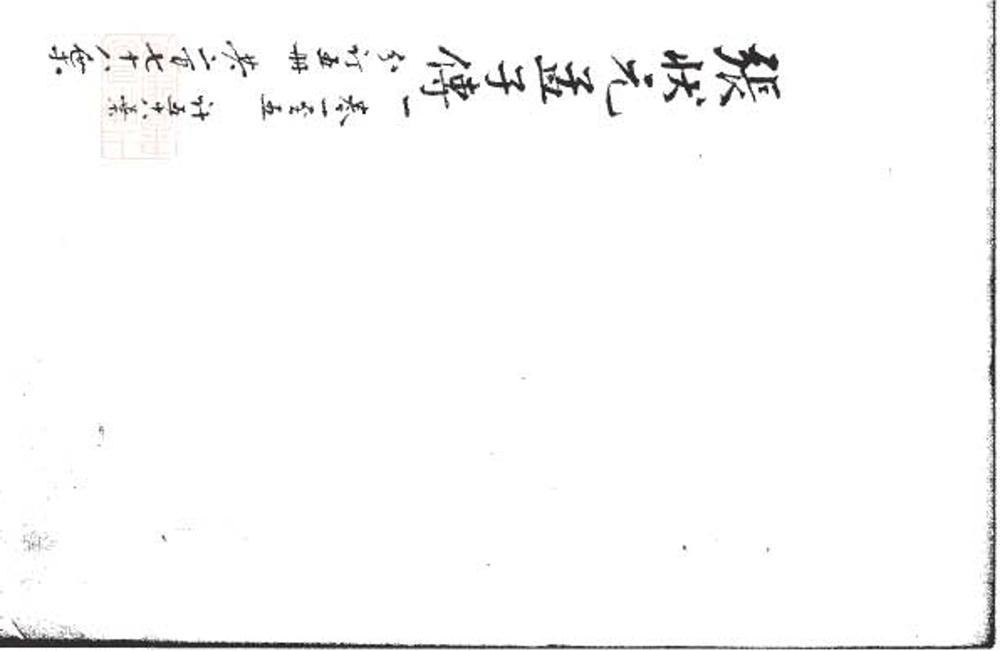 張狀元孟子傳
分訂五冊 共二百七十八葉
一 卷一至五 計五十葉